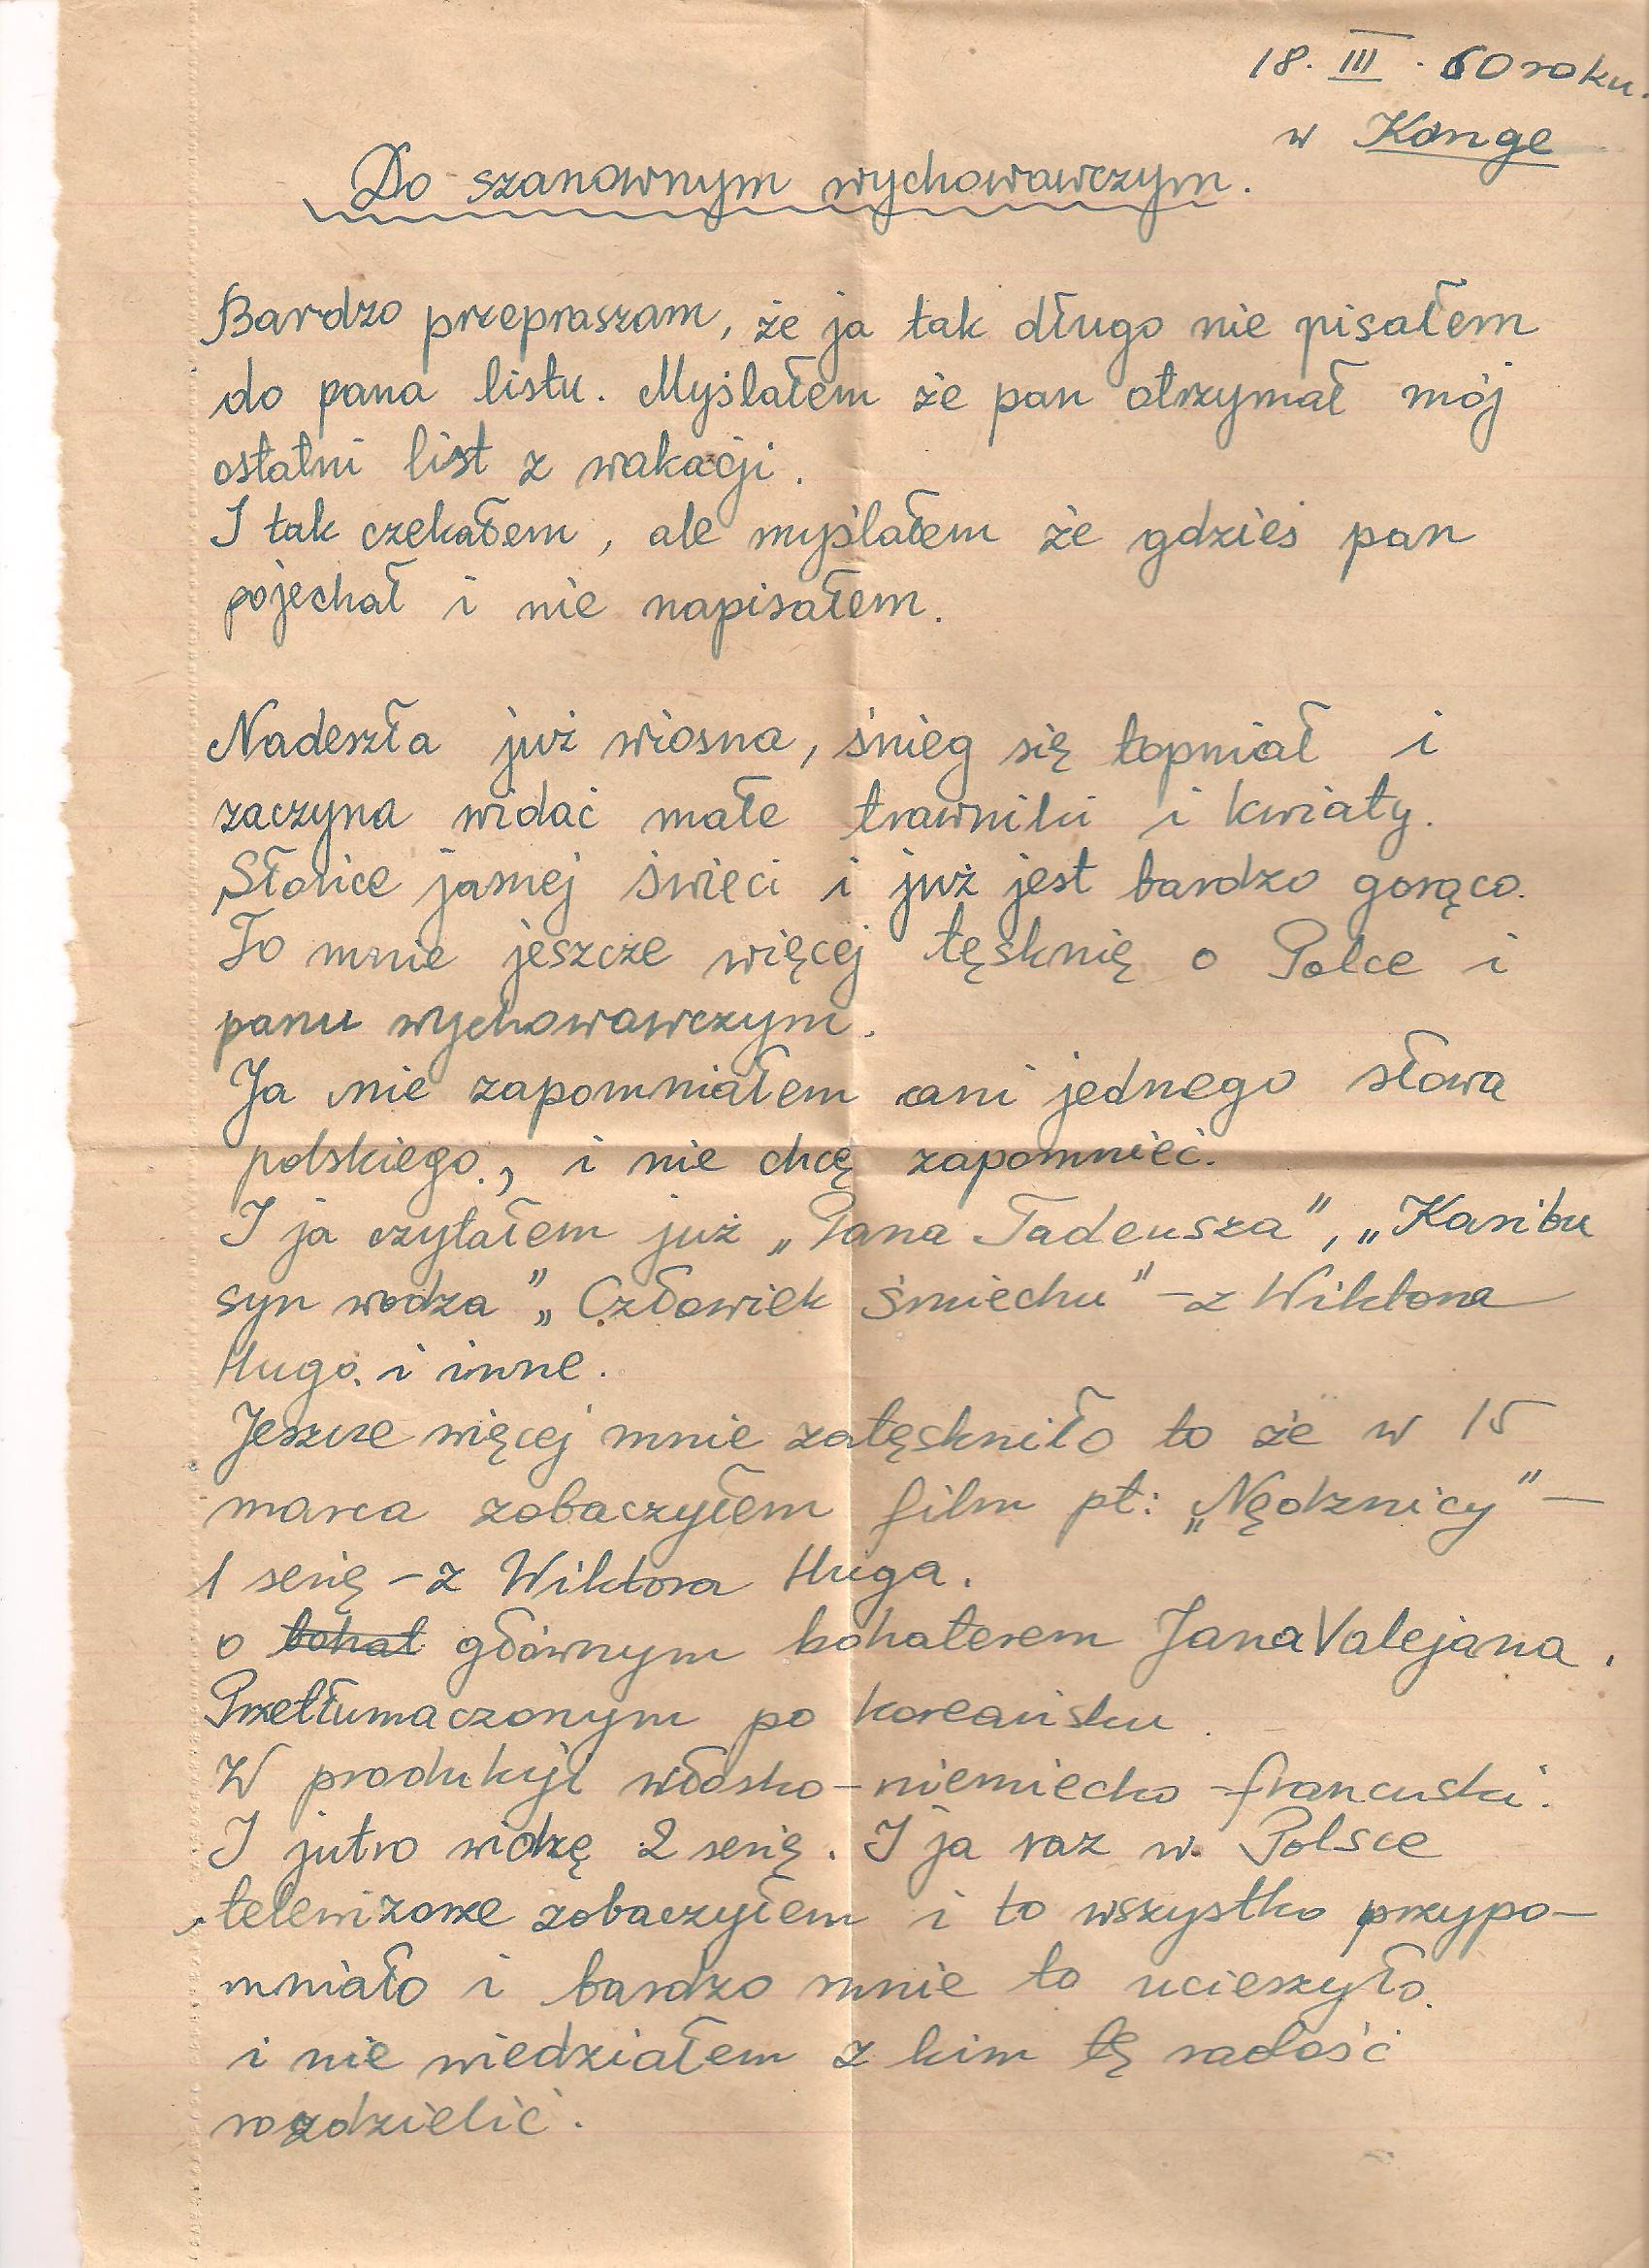 18. III. 60 roku.
w Kange
Do szanownym wychowawczym.
Bardzo przepraszam, że ja tak długo nie pisałem
do pana listu. Myślałem że pan otrzymał mój
ostatni list z wakacji.
I tak czekałem, ale myślałem że gdzieś pan
pojechał i nie napisałem.
Nadeszła już wiosna, śnieg się topniał i
zaczyna widać małe trawniki i kwiaty.
Słońce jasnej świeci i już jest bardzo gorąco.
To mnie jeszcze więcej tęsknię o Polce i
panu wychowawczym.
Ja nie zapomniałem ani jednego słowa
polskiego., i nie chcę zapomnieć.
I ja czytałem już „Pana Tadeusza”, „Karibu
syn wodza” „Człowiek śmiechu” – z Wiktora
Hugo. i inne.
Jeszcze więcej mnie zatęskniło to że w 15
marca zobaczyłem film pt: „Nędznicy” –
1 serię – z Wiktora Huga.
o bohat głównym bohaterem Jana Valejana.
Przetłumaczonym po koreańsku.
W produkyji włosko-niemiecko-francuski.
I jutro widzę 2 serię. I ja raz w. Polsce
telewizorze zobaczyłem i to wszystko przypo-
mniało i bardzo mnie to ucieszyło.
i nie wiedziałem z kim tę radość
rozdzielić.